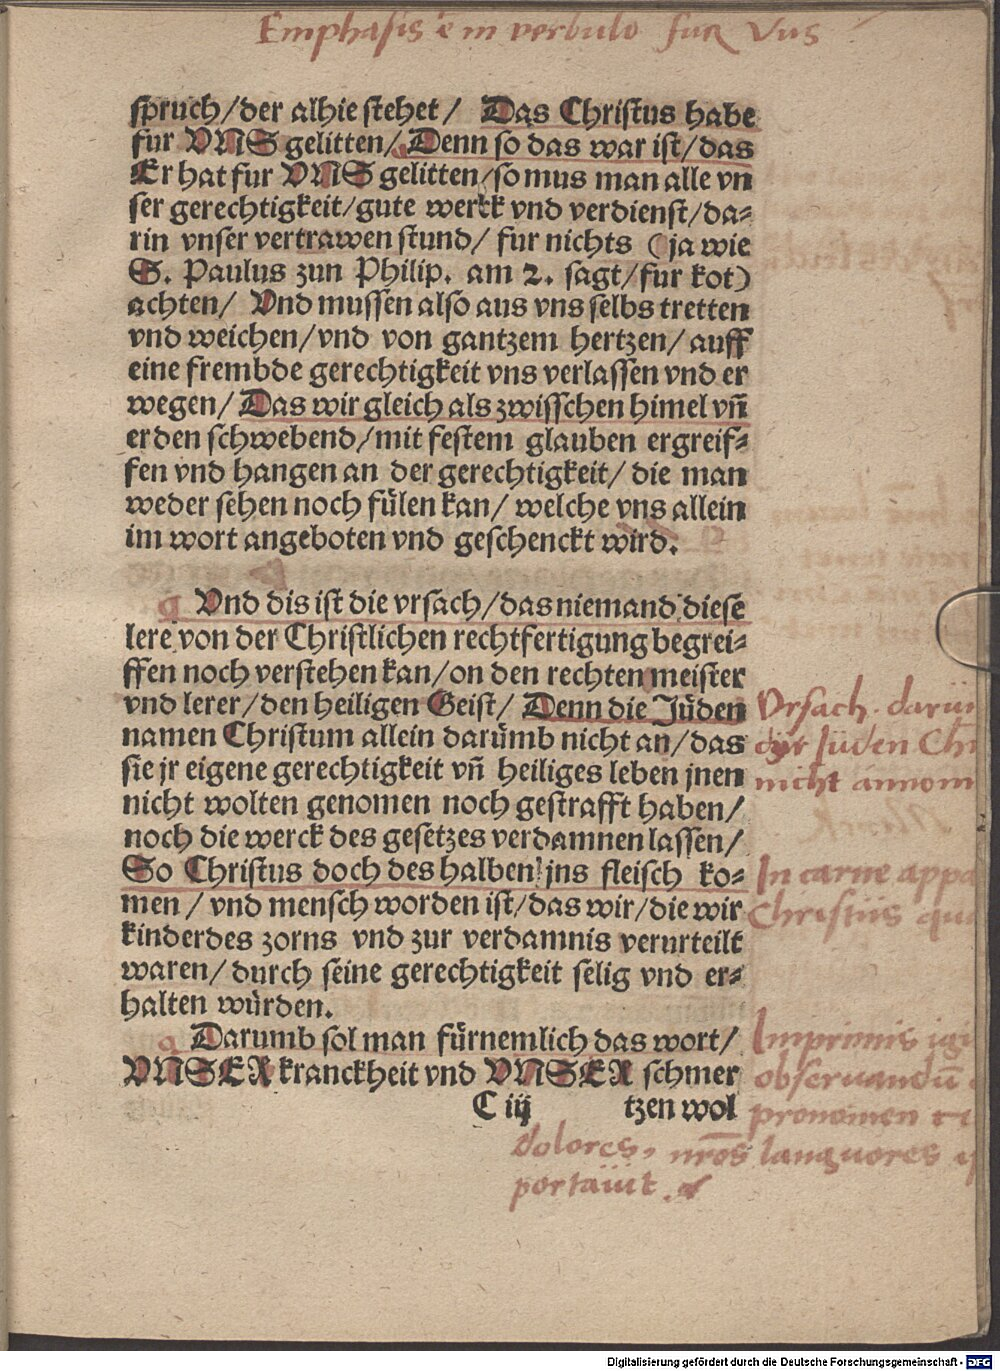 Emphasis e in verbulo fur Vns
spruch/der alhie stehet/ Das Christus habe
fur VNS gelitten/Denn so das war ist/das
Er hat fur VNS gelitten/so mus man alle vn
ser gerechtigkeit/gute werck vnd verdienst/da⸗
rin vnser vertrawen stund/ fur nichts (ja wie
S. Paulus zun Philip. am 2. sagt/fur kot)
achten/ Vnd mussen also aus vns selbs tretten
vnd weichen/vnd von gantzem hertzen/ auff
eine frembde gerechtigkeit vns verlassen vnd er
wegen/Das wir gleich als zwisschen himel vñ
erden schwebend/mit festem glauben ergreif⸗
fen vnd hangen an der gerechtigkeit/ die man
weder sehen noch fülen kan/ welche vns allein
im wort angeboten vnd geschenckt wird.
Vnd dis ist die vrsach/das niemand diese
lere von der Christlichen rechtfertigung begrei⸗
ffen noch verstehen kan/on den rechten meister
vnd lerer/den heiligen Geist/ Denn die Jüden
namen Christum allein darümb nicht an/das
sie jr eigene gerechtigkeit vñ heiliges leben jnen
nicht wolten genomen noch gestrafft haben/
noch die werck des gesetzes verdamnen lassen/
So Christus doch des halben jns fleisch ko⸗
men/ vnd mensch worden ist/das wir/die wir
kinder des zorns vnd zur verdamnis verurteilt
waren/durch seine gerechtigkeit selig vnd er⸗
halten würden.
Darumb sol man fürnemlich das wort/
VNSER kranckheit vnd VNSER schmer
C iij tzen wol
Vrsach darüm
die Jüden Chr
nicht annom
In carne appa
Christus qu
Imprimis igi
obseruandū
pronomen
dolores, nr̄os languores
portauit.
Digitalisierung gefördert durch die Deutsche Forschungsgemeinschaft - DFG